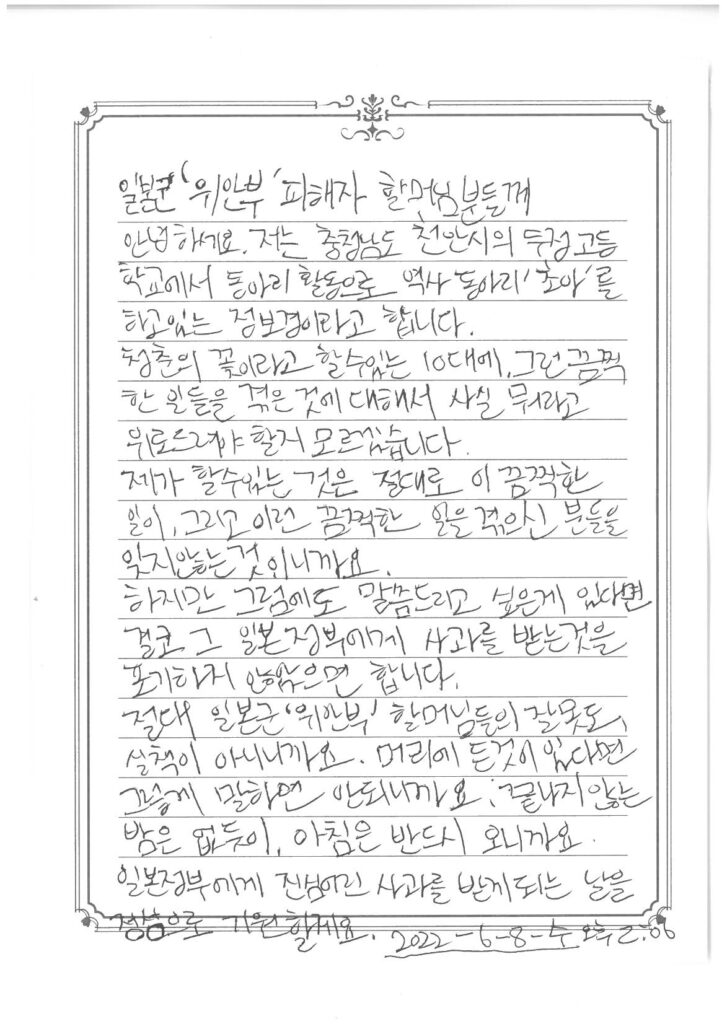 일본군 '위안부' 피해자 할머님분들께
안녕하세요. 저는 충청남도 천안시의 두정고등
학교에서 동아리 활동으로 역사 동아리 '초아'를
하고있는 정보경이라고 합니다.
청춘의 꽃이라고 할수있는 10대에, 그런 끔찍
한 일들을 겪은 것에 대해서 사실 뭐라고
위로드려야 할지 모르겠습니다.
제가 할수있는 것은 절대로 이 끔찍한
일이, 그리고 이런 끔찍한 일을 겪으신 분들을
잊지않는것이니까요.
하지만 그럼에도 말씀드리고 싶은게 있다면
결코 그 일본정부에게 사과를 받는것을
포기하지 않았으면 합니다.
절대 일본군 '위안부' 할머님들의 잘못도,
실책이 아니니까요. 머리에 든것이 있다면
그렇게 말하면 안되니까요. 끝나지 않는
밤은 없듯이, 아침은 반드시 오니까요.
일본정부에게 진심어린 사과를 받게되는 날을
진심으로 기원할게요. 2022-6-8-수 오후 2:06